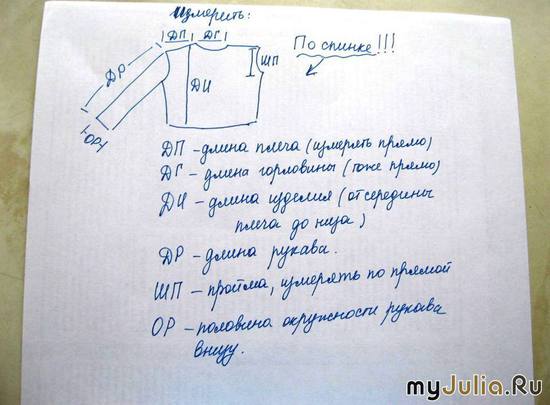 Измерить:
ДП ДГ
По спинке!!!
ШП
ДР
ДИ
ОР
ДП - длина плеча (измерять прямо)
ДГ - длина горловины (тоже прямо)
ДИ - длина изделия (от середины
плеча до низа)
ДР - длина рукава.
ШП - пройма, измерять по прямой
ОР - половина окружности рукава
внизу.
myJulia.Ru